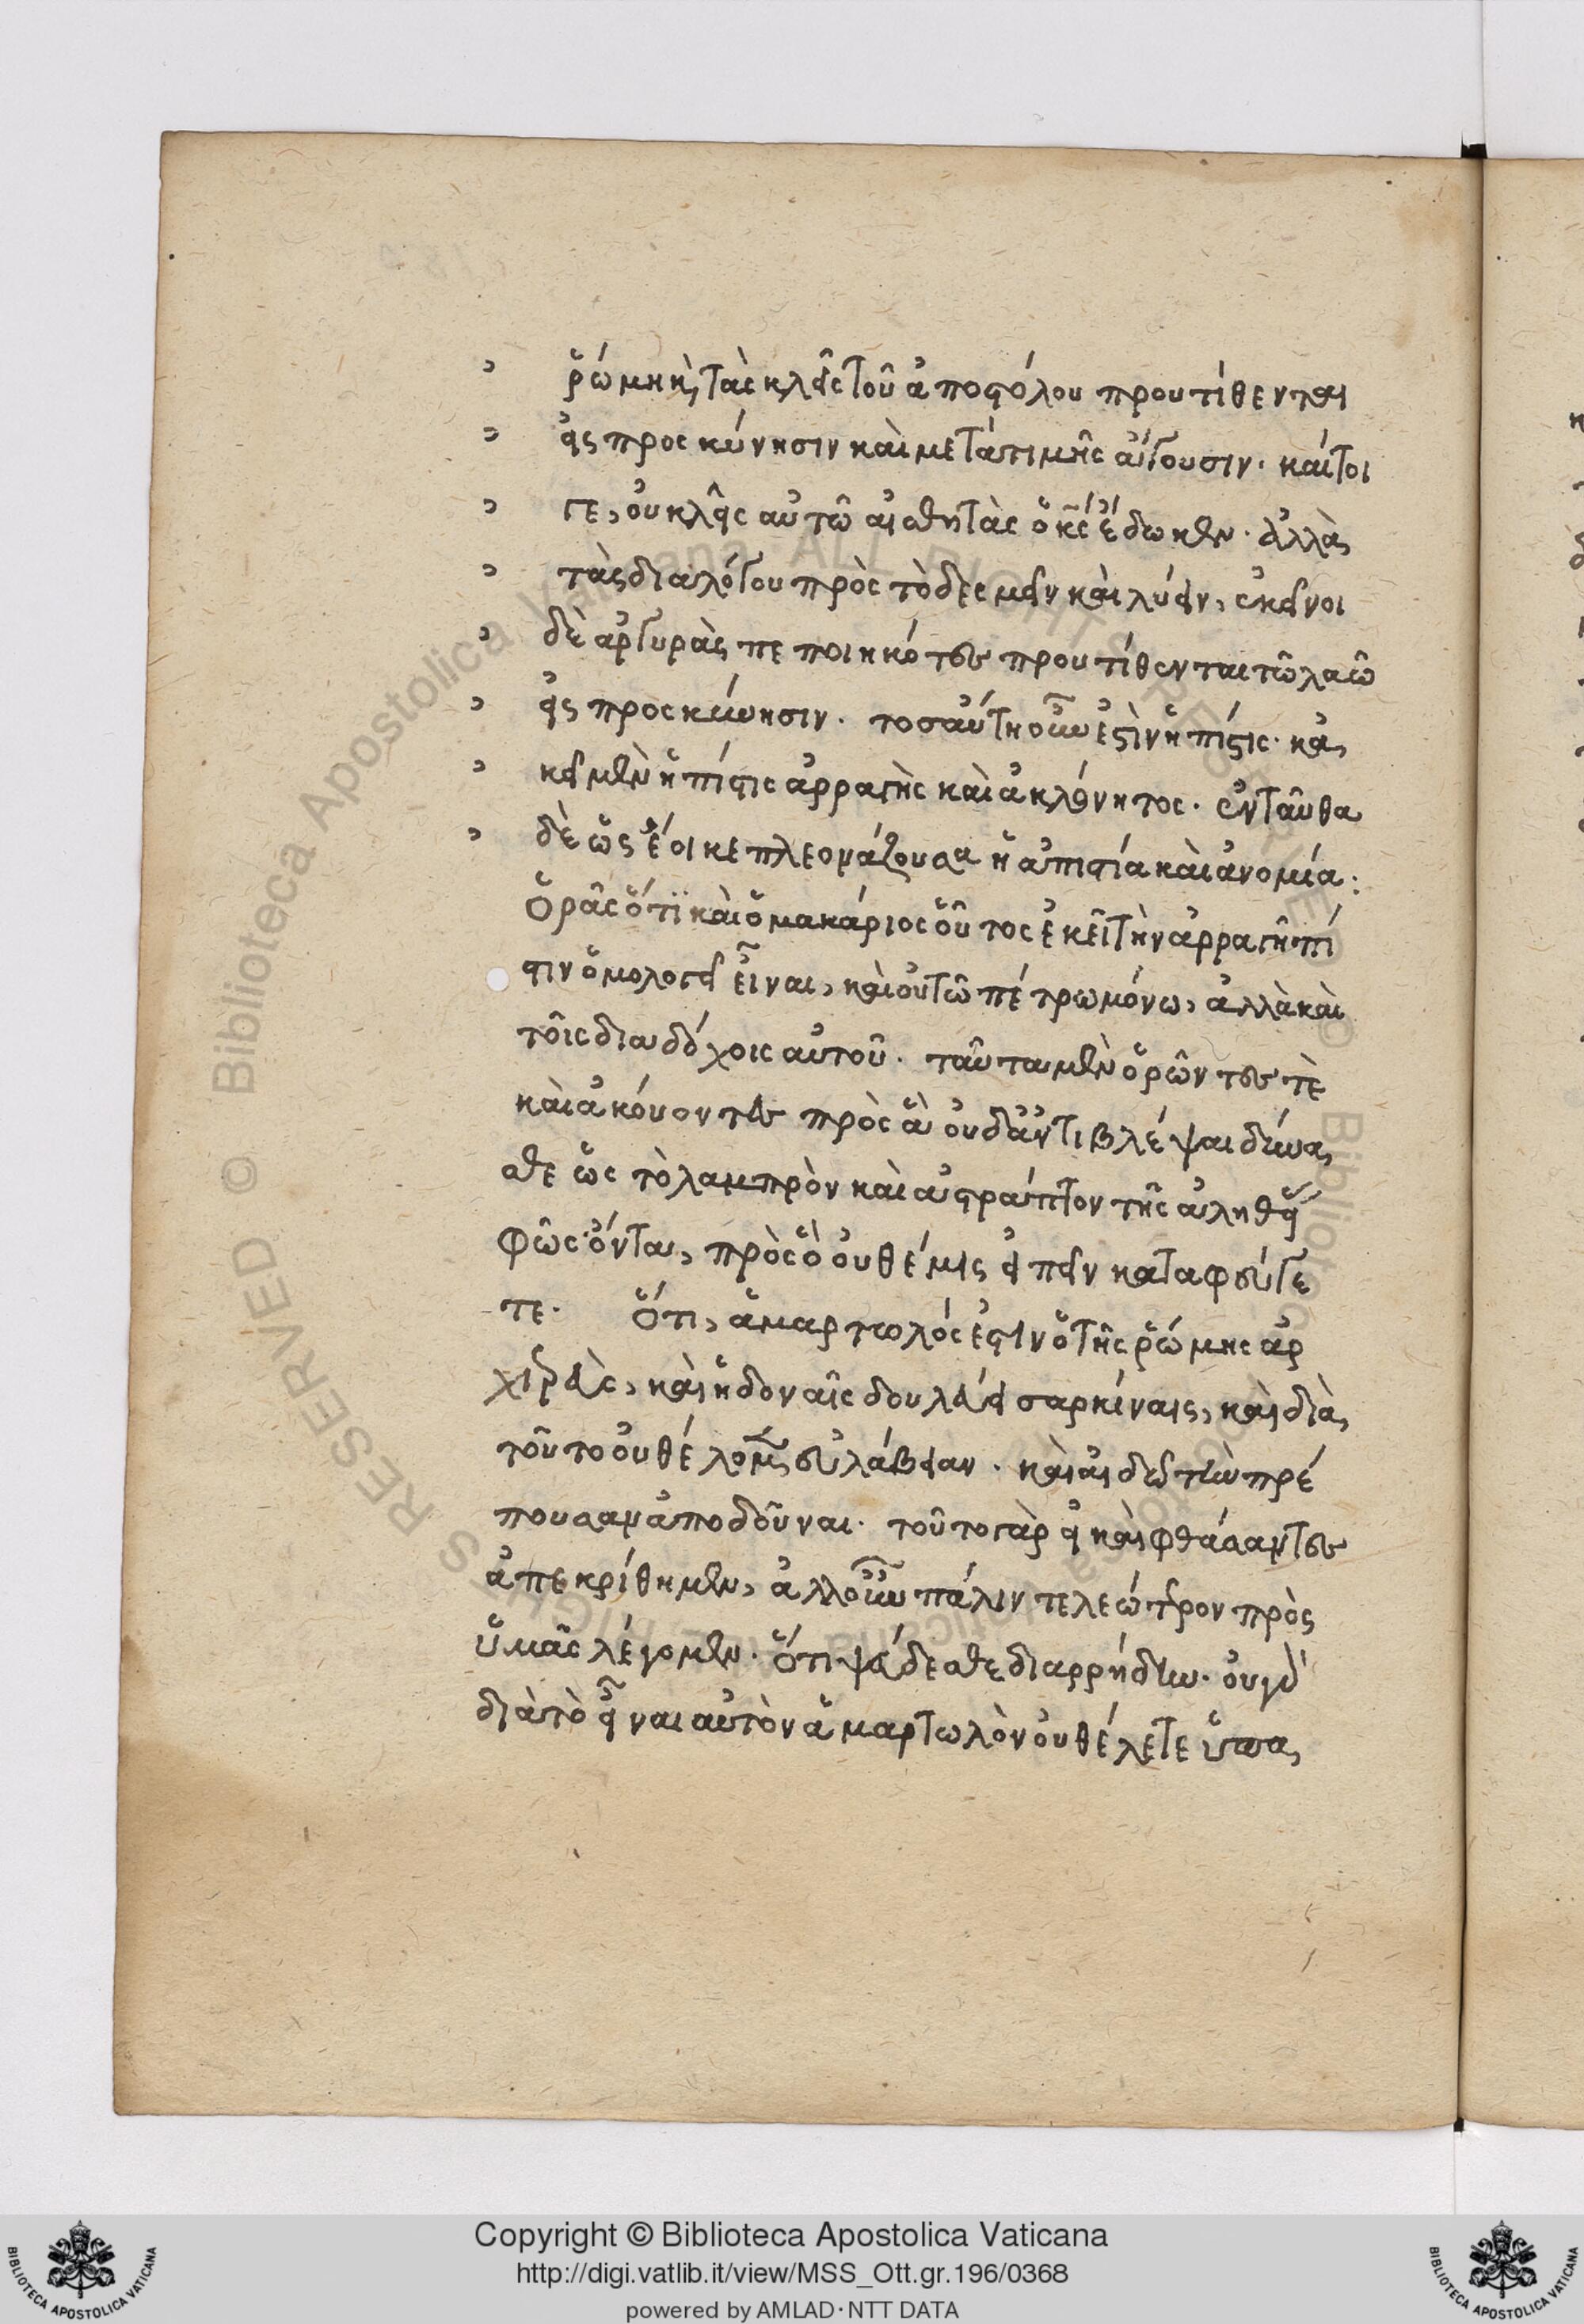 ῥώμη καὶ τὰς κλεῖς τοῦ ἀποστόλου προυτίθενται
εἰς προσκύνησιν καὶ μετὰ τιμῆς ἄγουσιν. καίτοι
γε, οὐ κλεῖς αὐτῶ αἰσθητὰς ὁ κς ἔδωκεν. ἀλλὰ
τὰς δια λόγου πρὸς τὸ δεσμεῖν καὶ λύειν, ἐκεῖνοι
δὲ ἀργυρὰς πεποιηκότες προυτίθενται τῶ λαῶ
εἰς προσκύνησιν. τοσαύτη οὖν ἐστὶν ἡ πίστις. κα
κεῖ μὲν ἡ πίστις ἀρραγὴς καὶ ἀκλόνητος. ἐνταῦθα
δὲ ὡς ἔοικε πλεονάζουσα ἡ ἀπιστία καὶ ἀνομία:
Ὁρᾶς ὅτι καὶ ὁ μακάριος οὗτος ἐκεῖ τὴν ἀρραγῆ πί
στιν ὁμολογεῖ εἶναι, καὶ οὐ τῶ πέτρω μόνω, ἀλλὰ καὶ
τοῖς διαδόχοις αὐτοῦ. ταῦτα μὲν ὁρῶντες τὲ
καὶ ἀκούοντες πρὸς ἃ οὐδ' ἀντιβλέψαι δύνα
σθε ὡς τὸ λαμπρὸν καὶ ἀστράπτον τῆς ἀληθείας
φῶς ὄντα, πρὸς ὃ οὐ θέμις εἰπεῖν καταφεύγε
τε. Ὅτι, ἁμαρτωλός ἐστιν ὁ τῆς ῥώμης ἀρ
χιερεὺς, καὶ ἡδοναῖς δουλεύει σαρκίναις, καὶ διὰ
τοῦτο οὐ θέλομεν εὐλάβειαν. καὶ αἰδῶ τὴν πρέ
πουσαν ἀποδοῦναι. τοῦτο γὰρ εἰ καὶ φθάσαντες
ἀπεκρίθημεν, ἀλλ' οὖν πάλιν τελεώτερον πρὸς
ὑμᾶς λέγομεν. Ὅτι ψεύδεσθε διαρρήδην. οὐ γὰρ
διὰ τὸ εἶναι αὐτὸν ἁμαρτωλὸν οὐ θέλετε ὑπα
Copyright © Biblioteca Apostolica Vaticana
http://digi.vatlib.it/view/MSS_Ott.gr.196/0368
powered by AMLAD·NTT DATA